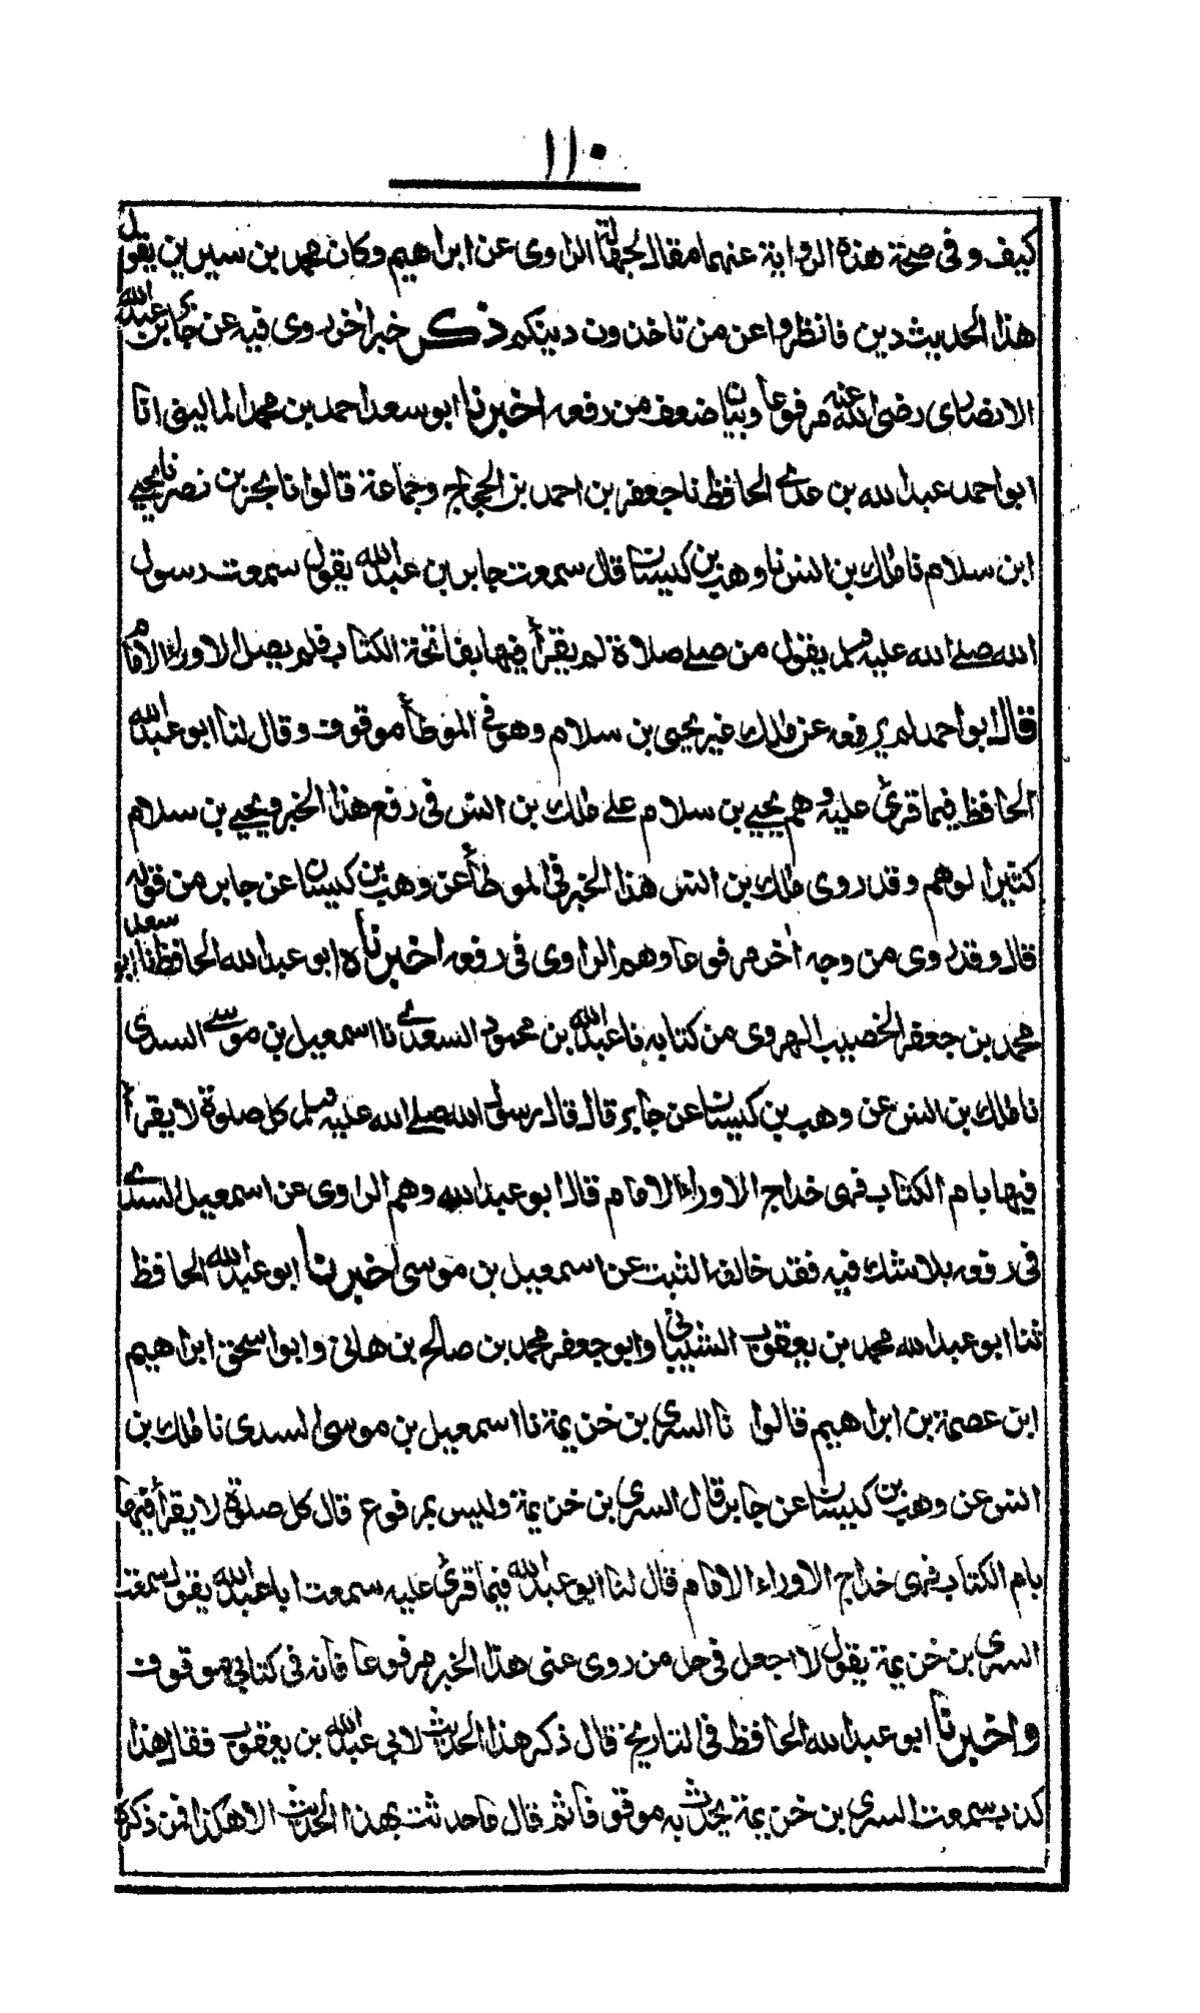 ١١٠
كيف وفى صحة هذه الرواية عنهما مقال لجهالة الراوى عن ابراهيم وكان محمد بن سيرين يقول
هذا الحديث دين فانظروا عن من تاخذون دينكم ذكر خبر اخر روى فيه عن جابر بن عبد الله
الانصارى رضى الله عنه مرفوعا وبيان ضعف من رفعه اخبرنا ابو سعد احمد بن محمد المالينى انا
ابو احمد عبد الله بن عدى الحافظ نا جعفر بن احمد بن الحجاج وجماعة قالوا نا بحر بن نصر نا يحيى
ابن سلام نا ملك بن انس نا وهب بن كيسان قال سمعت جابر بن عبد الله يقول سمعت رسول
الله صلى الله عليه وسلم يقول من صلى صلاة لم يقرأ فيها بفاتحة الكتاب فلم يصل الا وراء الامام
قال ابو احمد لم يرفعه عن ملك غير يحيى بن سلام وهو فى الموطأ موقوف وقال لنا ابو عبد الله
الحافظ فيما قرئ عليه وهم يحيى بن سلام على ملك بن انس فى رفع هذا الخبر ويحيى بن سلام
كثير الوهم وقد روى ملك بن انس هذا الخبر فى الموطأ عن وهب بن كيسان عن جابر من قوله
قال وقد روى من وجه اخر مرفوعا وهم الراوى فى رفعه اخبرناه ابو عبد الله الحافظ نا ابو سعد
محمد بن جعفر الخصيب الهروى من كتابه نا عبد الله بن محمود السعدى نا اسمعيل بن موسى السدى
نا ملك بن انس عن وهب بن كيسان عن جابر قال قال رسول الله صلى الله عليه وسلم كل صلوة لا يقرأ
فيها بام الكتاب فهى خداج الا وراء الامام قال ابو عبد الله وهم الراوى عن اسمعيل السدى
فى رفعه بلا شك فيه فقد خالفه الثبت عن اسمعيل بن موسى اخبرنا ابو عبد الله الحافظ
ثنا ابو عبد الله محمد بن يعقوب الشيبانى وابو جعفر محمد بن صالح بن هانى وابو اسحق ابراهيم
ابن عصمة بن ابراهيم قالوا نا السرى بن خزيمة نا اسمعيل بن موسى السدى نا ملك بن
انس عن وهب بن كيسان عن جابر قال السرى بن خزيمة وليس بمرفوع قال كل صلوة لا يقرأ فيها
بام الكتاب فهى خداج الا وراء الامام قال لنا ابو عبد الله فيما قرئ عليه سمعت ابا عبد الله يقول سمعت
السرى بن خزيمة يقول لا اجعل فى حل من روى عنى هذا الخبر مرفوعا فانه فى كتابى موقوف
واخبرنا ابو عبد الله الحافظ فى التاريخ قال ذكر هذا الحديث لابى عبد الله بن يعقوب فقال هذا
كذب سمعت السرى بن خزيمة يحدث به موقوفا ثم قال ما حدثت بهذا الحديث الا هكذا فمن ذكره